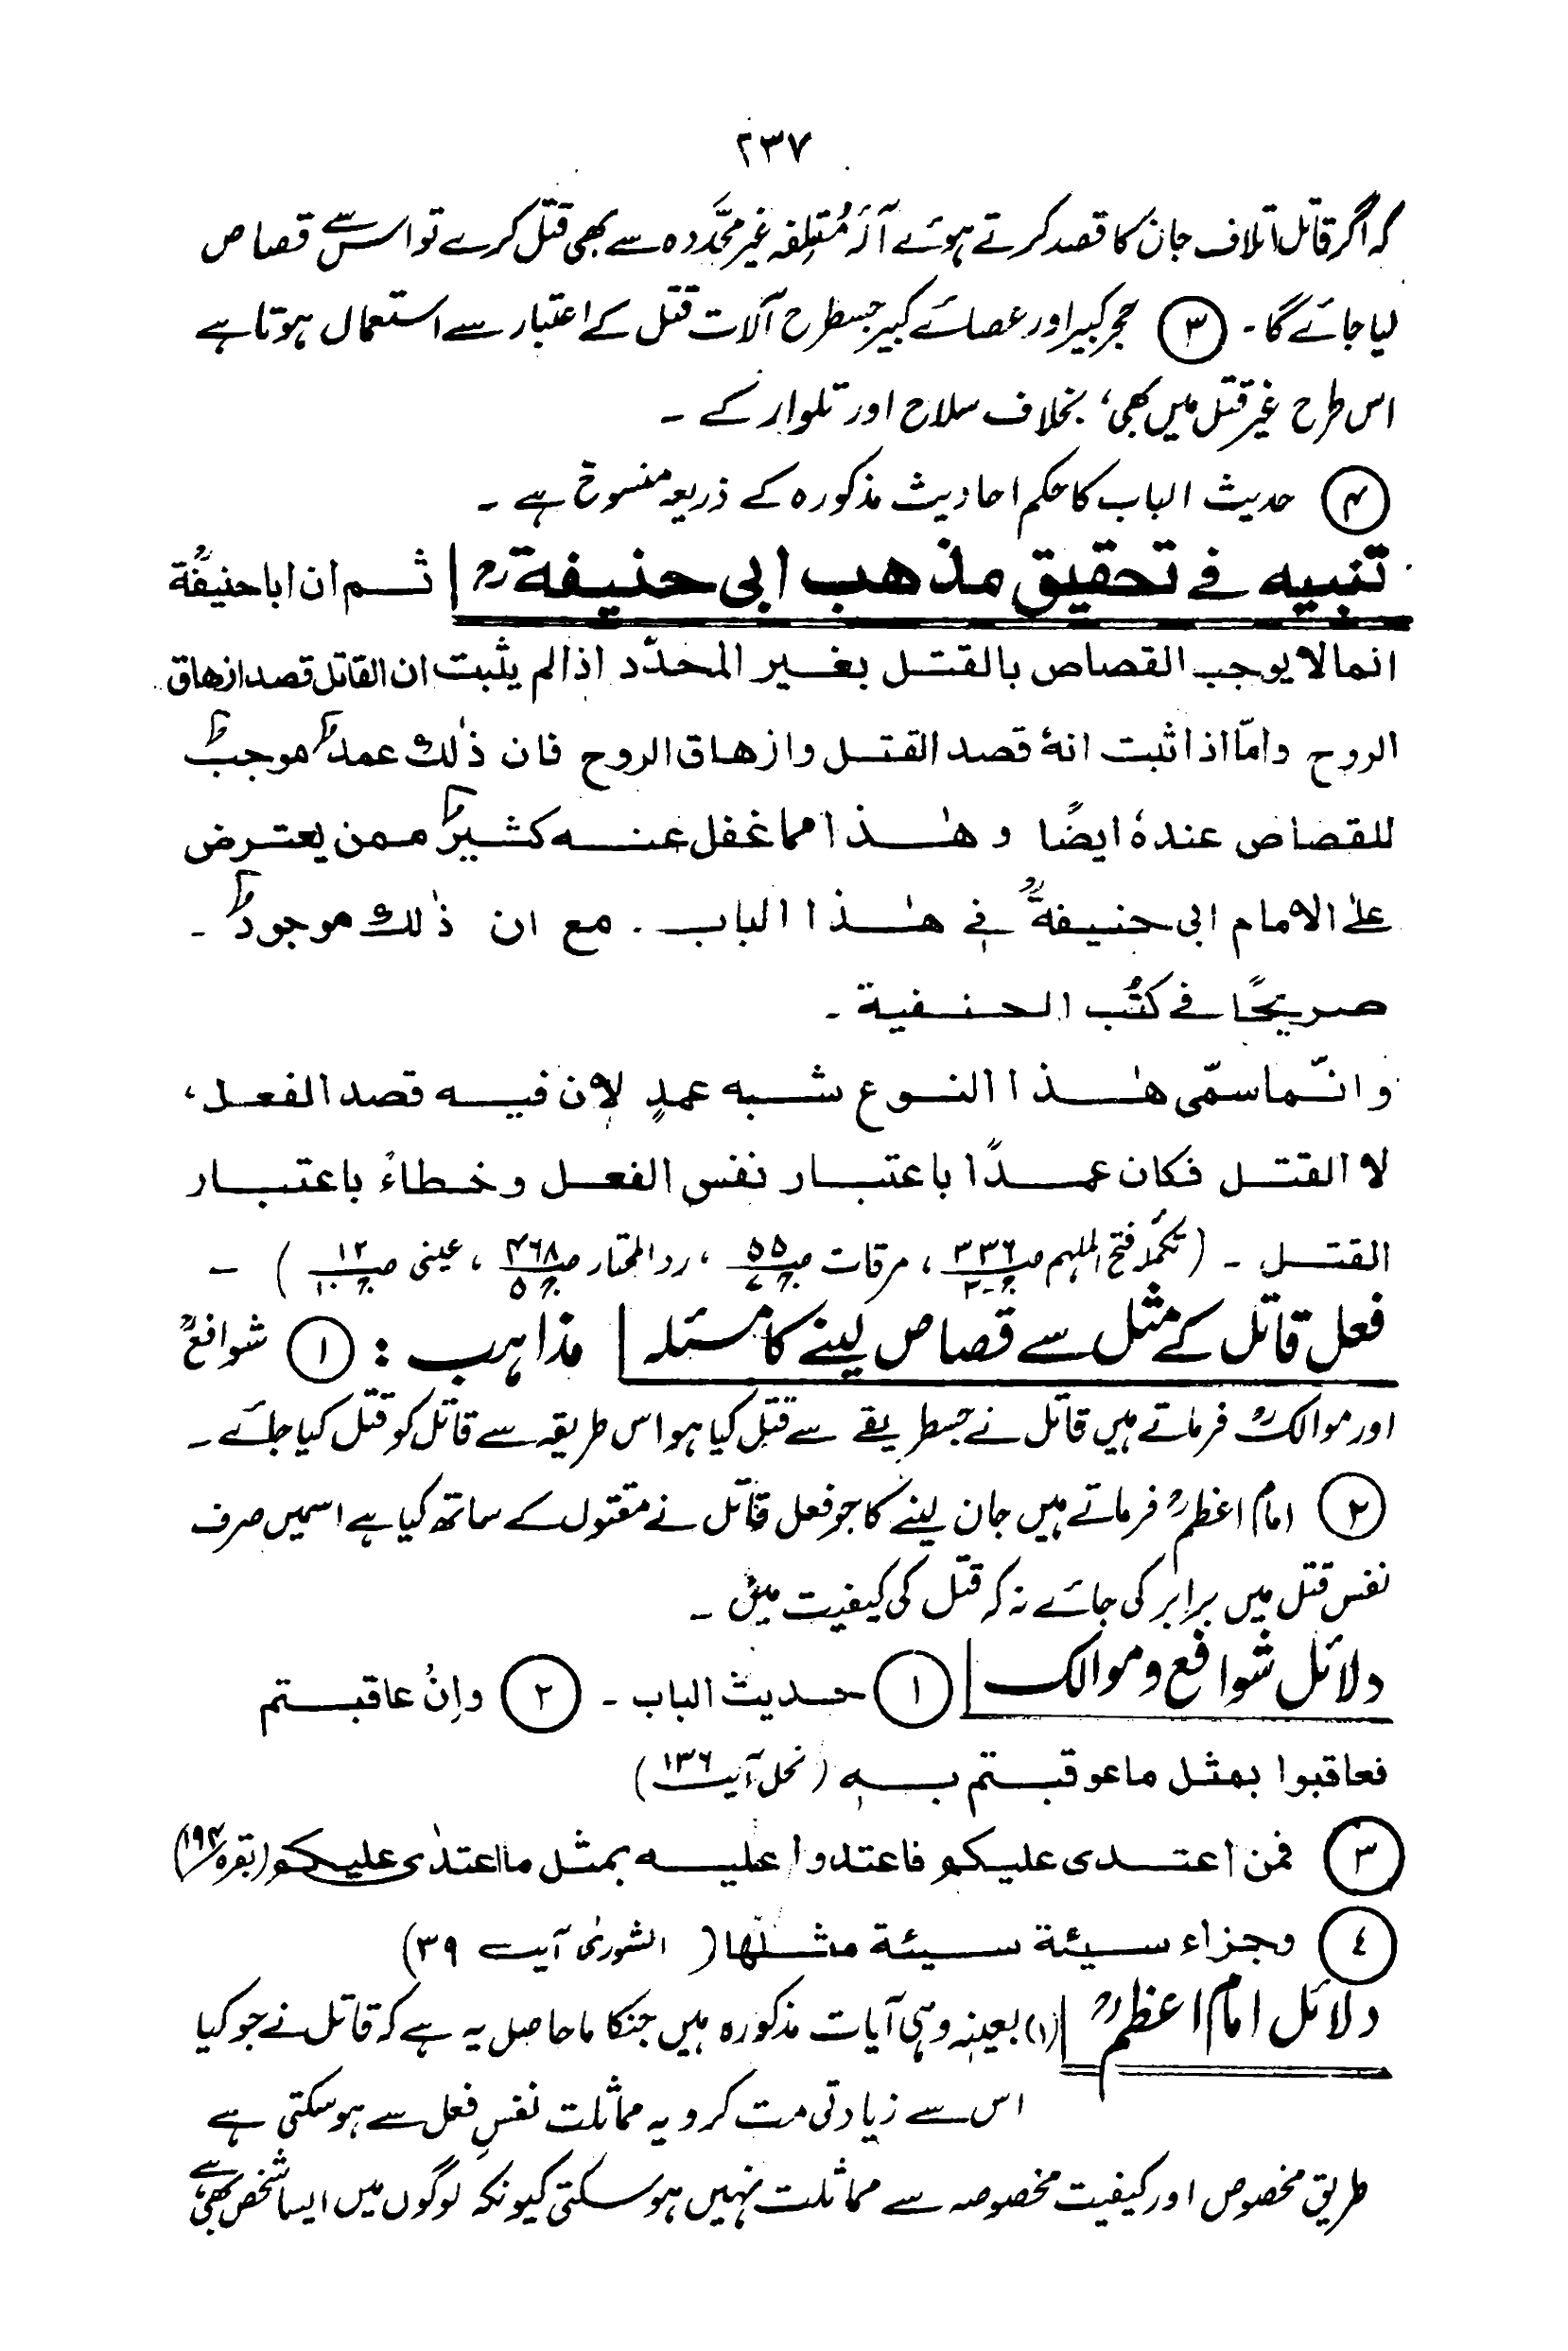 ۲۳۷
کہ اگر قاتل اتلاف جان کا قصد کرتے ہوئے آلۂ مُتلِفہ غیر محَّددہ سے بھی قتل کرے تو اس سے قصاص
لیا جائے گا۔ (۳) حجر کبیر اور عصائے کبیر جسطرح آلات قتل کے اعتبار سے استعمال ہوتا ہے
اس طرح غیر قتل میں بھی، بخلاف سلاح اور تلوار کے ۔
(۴) حدیث الباب کا حکم احادیث مذکورہ کے ذریعہ منسوخ ہے ۔
تنبیه فے تحقیق مذهب ابی حنیفة رح | ثم ان ابا حنیفةؒ
انما لا یوجب القصاص بالقتل بغیر المحدّد اذا لم یثبت ان القاتل قصد ازهاق
الروح وامّا اذا ثبت انهٗ قصد القتل وازهاق الروح فان ذٰلك عمدٌ موجبٌ
للقصاص عندهٗ ایضًا وهٰذا مما غفل عنه کثیرٌ ممن یعترض
علے الامام ابی حنیفةؒ فے هٰذا الباب . مع ان ذٰلك موجودٌ ۔
صریحًا فے کتُب الحنفیة ۔
وانّما سمّی هٰذا النوع شبه عمدٍ لان فیه قصد الفعل،
لا القتل فکان عمدًا باعتبار نفس الفعل وخطاءً باعتبار
القتل ۔ (تکملۂ فتح الملہم صـ۳۳۶ جـ۲، مرقات صـ۵۵ جـ۷، رد المحتار صـ۴۶۸ جـ۵، عینی صـ۱۲ جـ۱۰) ۔
فعل قاتل کے مثل سے قصاص لینے کا مسئلہ | مذاہب : (۱) شوافعؒ
اور موالکؒ فرماتے ہیں قاتل نے جسطریقے سے قتل کیا ہو اس طریقہ سے قاتل کو قتل کیا جائے ۔
(۲) امام اعظمؒ فرماتے ہیں جان لینے کا جو فعل قاتل نے مقتول کے ساتھ کیا ہے اسمیں صرف
نفس قتل میں برابر کی جائے نہ کہ قتل کی کیفیت میں ۔
دلائل شوافع وموالک | (۱) حدیث الباب ۔ (۲) واِنْ عاقبتم
فعاقبوا بمثل ما عوقبتم بہٖ (نحل آیت ۱۳۶)
(۳) فمن اعتدی علیکم فاعتدوا علیه بمثل ما اعتدٰی علیکم (بقرہ ۱۹۴)
(٤) وجزاء سیئة سیئة مثلها (الشورٰی آیت ۳۹)
دلائل امام اعظمؒ | (۱) بعینہٖ وہی آیات مذکورہ ہیں جنکا ماحاصل یہ ہے کہ قاتل نے جو کیا
اس سے زیادتی مت کرو یہ مماثلت نفسِ فعل سے ہوسکتی ہے
طریق مخصوص اور کیفیت مخصوصہ سے مماثلت نہیں ہوسکتی کیونکہ لوگوں میں ایسا شخص بھی ہے